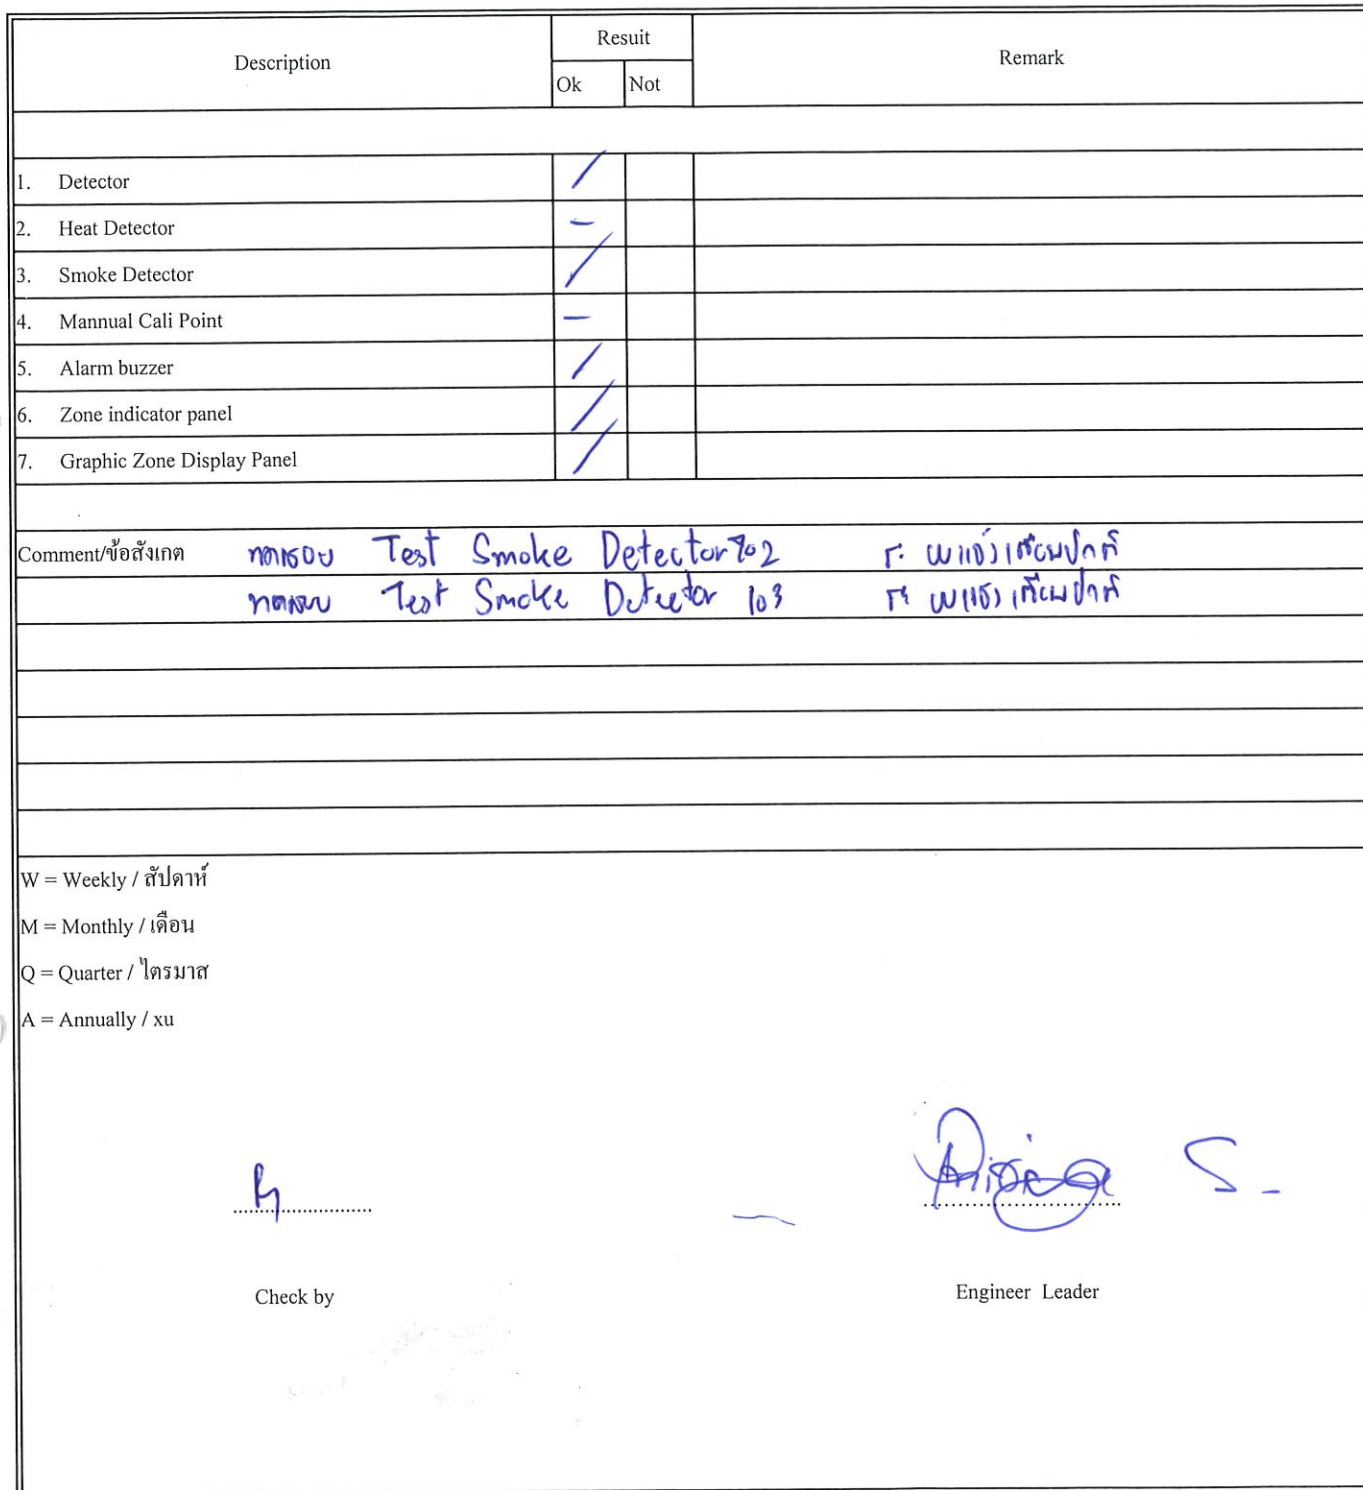 Description Resuit Remark
Ok Not
1. Detector /
2. Heat Detector -
3. Smoke Detector /
4. Mannual Cali Point -
5. Alarm buzzer /
6. Zone indicator panel /
7. Graphic Zone Display Panel /
Comment/ข้อสังเกต ทดสอบ Test Smoke Detector 702 ระบบแจ้งเตือนปกติ
ทดสอบ Test Smoke Detector 103 ระบบแจ้งเตือนปกติ
W = Weekly / สัปดาห์
M = Monthly / เดือน
Q = Quarter / ไตรมาส
A = Annually / xu
Check by Engineer Leader